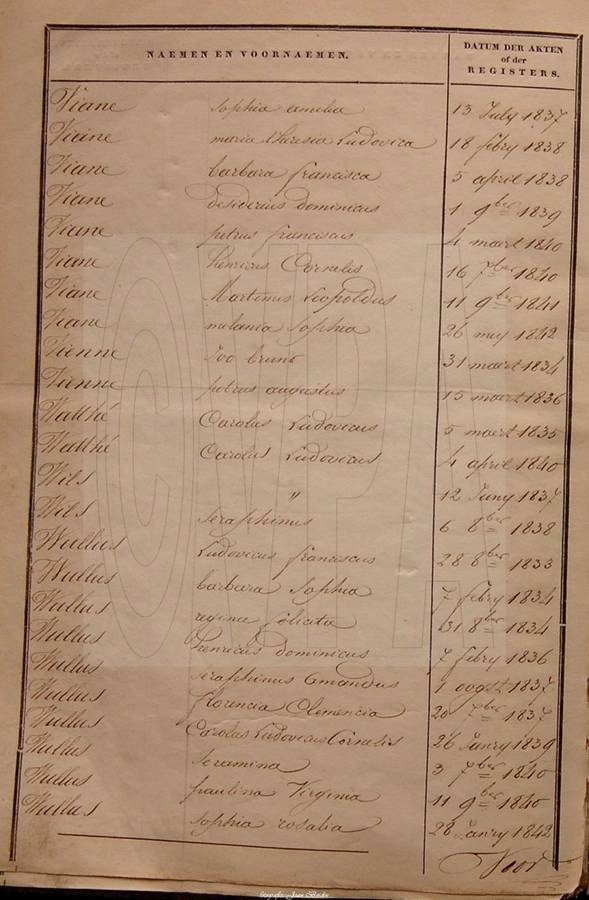 NAEMEN EN VOORNAEMEN. DATUM DER AKTEN
of der
REGISTERS.
Viane sophia amelia 13 July 1837
Viane maria theresia Ludovica 18 febry 1838
Viane barbara francisca 5 april 1838
Viane desiderius dominicus 1 9ber 1839
Viane petrus franciscus 4 maert 1840
Viane henricus Cornelis 16 7ber 1840
Viane Martinus Leopoldus 11 9ber 1841
Viane melania sophia 26 mey 1842
Vienne ivo bruno 31 maert 1834
Vienne petrus augustus 15 maert 1836
Watthé Carolus Ludovicus 5 maert 1835
Watthé Carolus Ludovicus 4 april 1840
Wils " 12 Juny 1837
Wils seraphinus 6 8ber 1838
Wullus Ludovicus franciscus 28 8ber 1833
Wullus barbara sophia 7 febry 1834
Wullus regina felicita 31 8ber 1834
Wullus henricus dominicus 7 febry 1836
Wullus seraphinus Amandus 1 oogst 1837
Wullus florencia Clemencia 20 7ber 1837
Wullus Carolus Ludovicus Cornelis 26 Janry 1839
Wullus seramina 3 7ber 1840
Wullus paulina Virginia 11 9ber 1840
Wullus sophia rosalia 28 Janry 1842
Voor